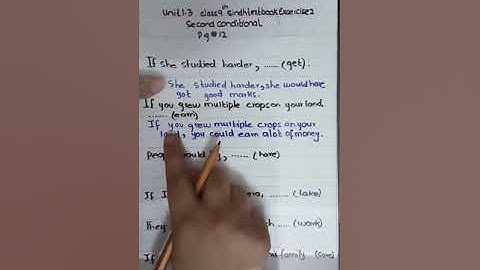 Unit 1.3 class 9th Sindh textbook Exercise 2
Second Conditional
Pg # 12
If she studied harder, ...... (get).
She studied harder, she would have
got good marks.
If you grew multiple crops on your land,
....... (earn)
If you grew multiple crops on your
land, you could earn a lot of money.
people would, ...... (have)
If I , ....... (take)
They (work)
If family (save)